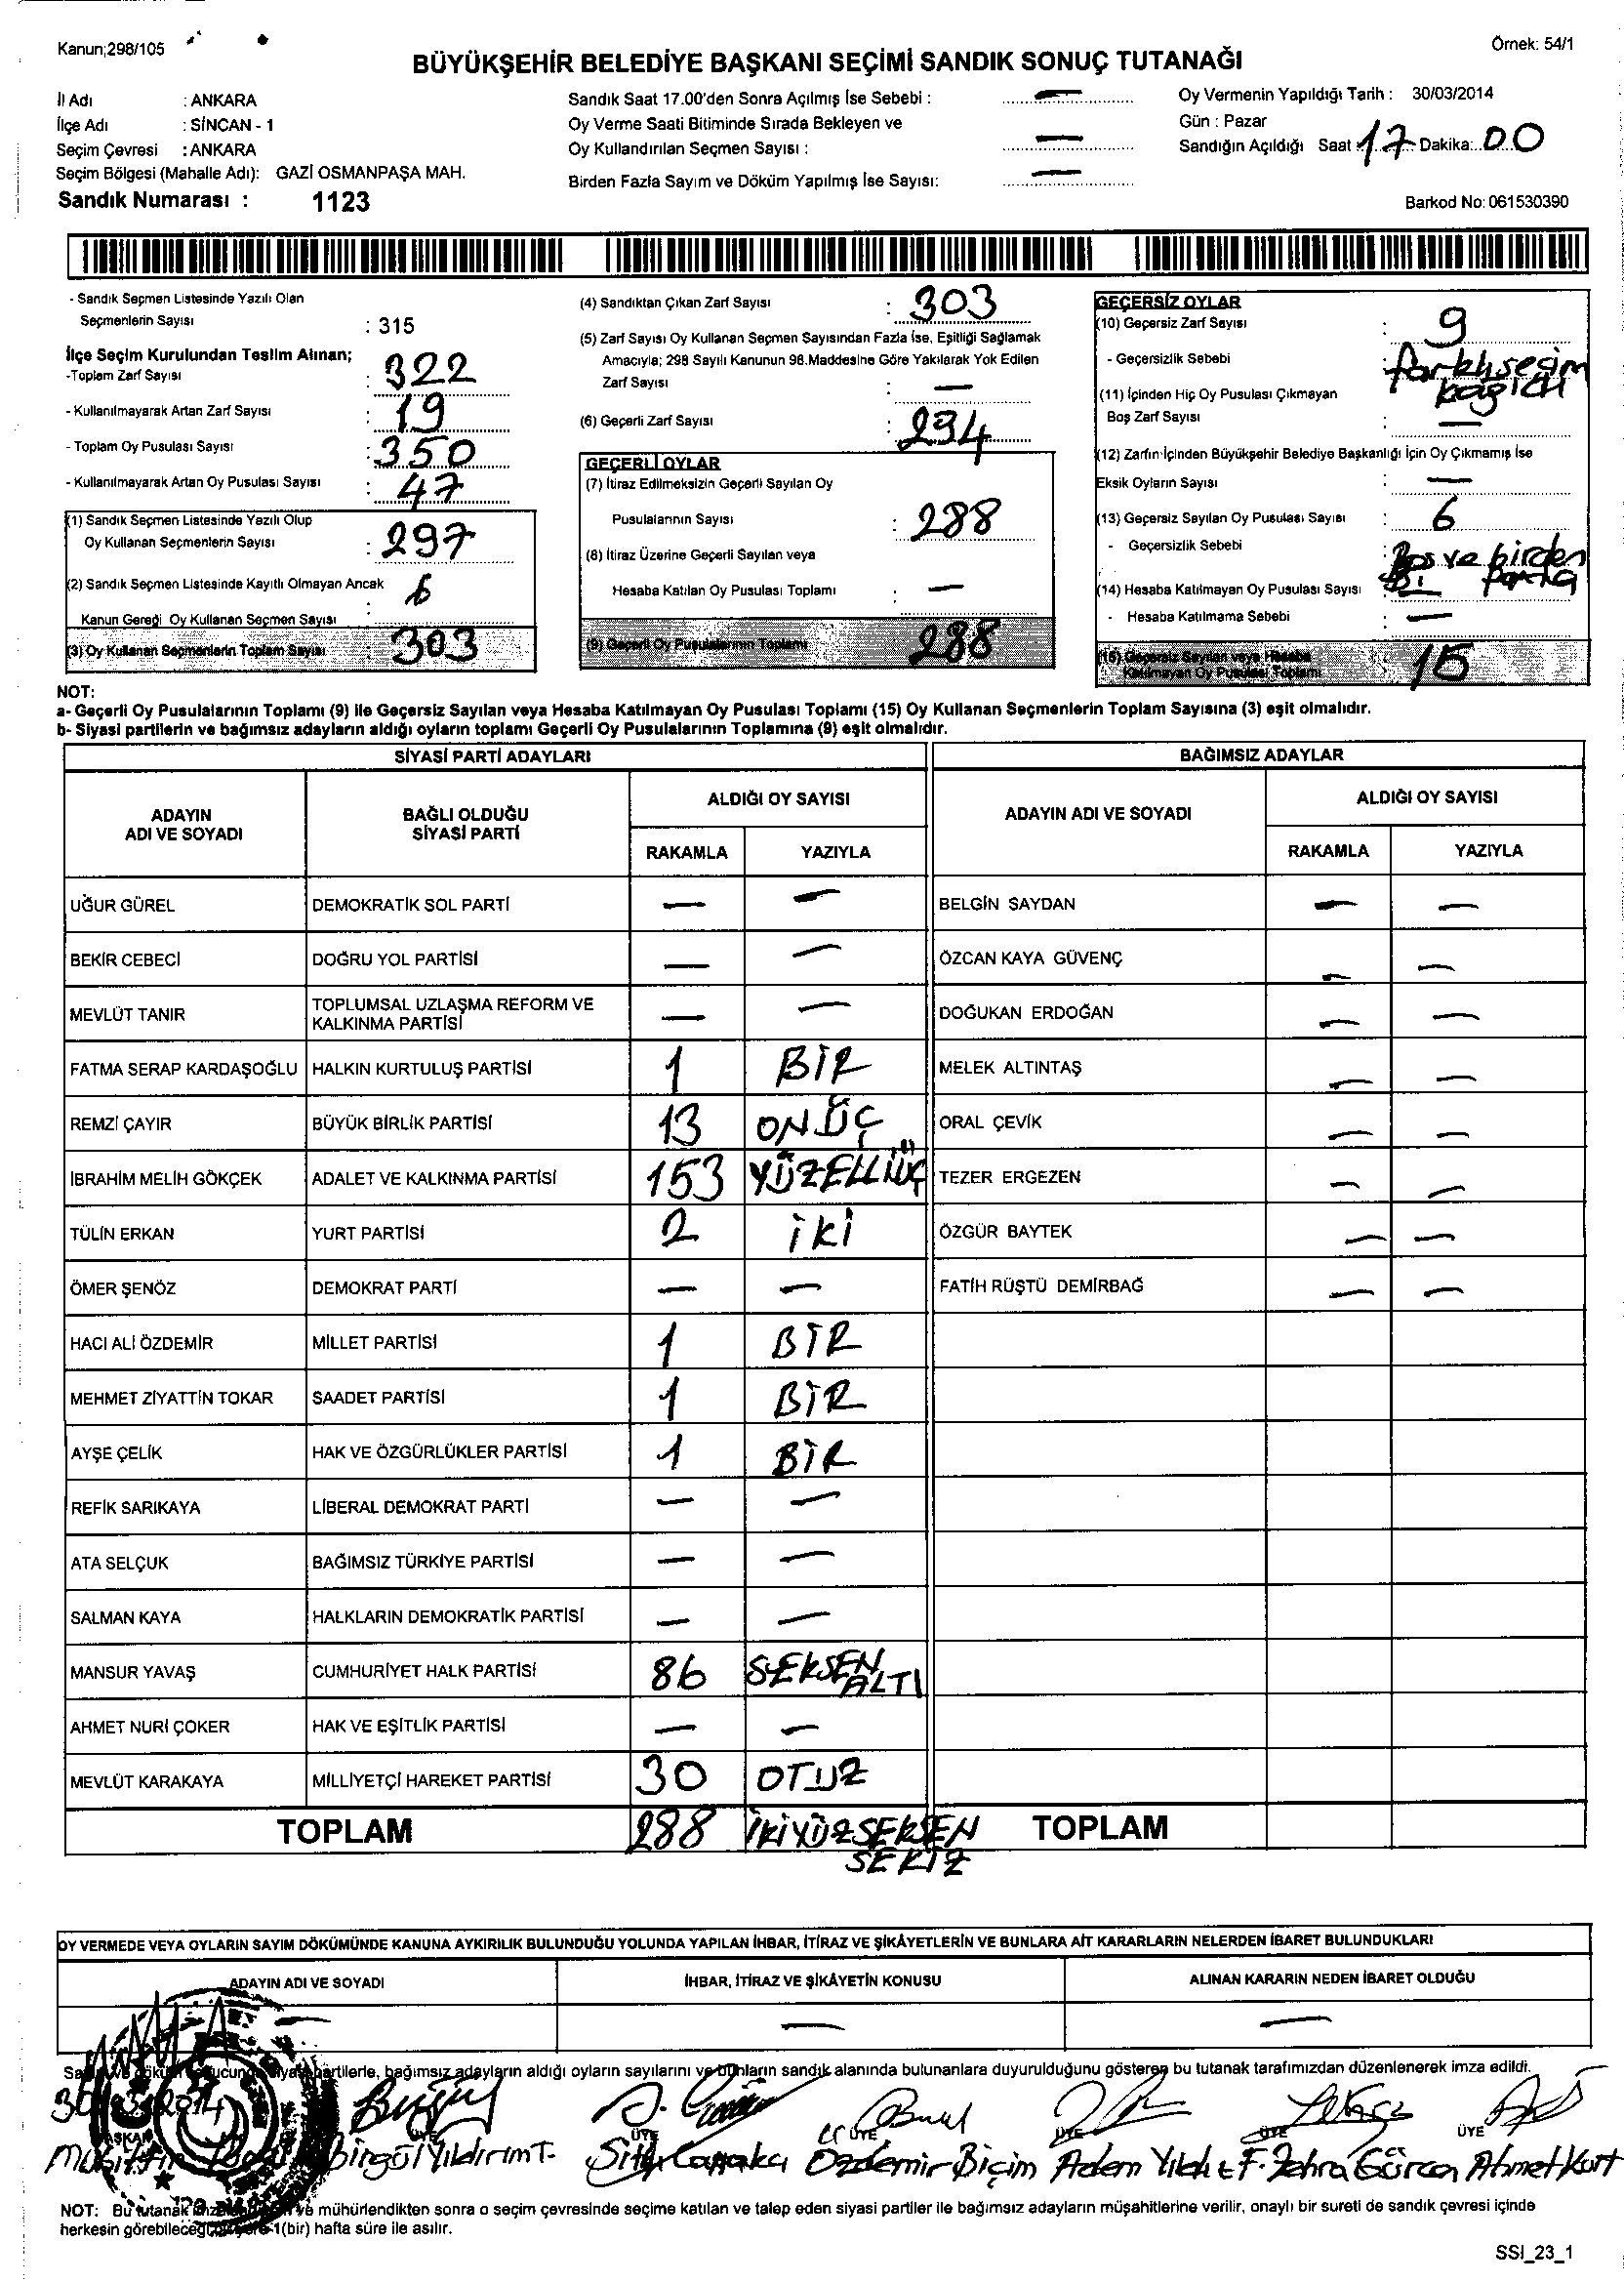 Kanun;298/105
Örnek: 54/1
BÜYÜKŞEHİR BELEDİYE BAŞKANI SEÇİMİ SANDIK SONUÇ TUTANAĞI
İl Adı : ANKARA
İlçe Adı : SİNCAN - 1
Seçim Çevresi : ANKARA
Seçim Bölgesi (Mahalle Adı): GAZİ OSMANPAŞA MAH.
Sandık Numarası : 1123
Sandık Saat 17.00'den Sonra Açılmış İse Sebebi : —
Oy Verme Saati Bitiminde Sırada Bekleyen ve
Oy Kullandırılan Seçmen Sayısı : —
Birden Fazla Sayım ve Döküm Yapılmış İse Sayısı: —
Oy Vermenin Yapıldığı Tarih : 30/03/2014
Gün : Pazar
Sandığın Açıldığı Saat 17 Dakika: 00
Barkod No: 061530390
- Sandık Seçmen Listesinde Yazılı Olan
Seçmenlerin Sayısı : 315
İlçe Seçim Kurulundan Teslim Alınan;
-Toplam Zarf Sayısı : 322
- Kullanılmayarak Artan Zarf Sayısı : 19
- Toplam Oy Pusulası Sayısı : 350
- Kullanılmayarak Artan Oy Pusulası Sayısı : 47
(1) Sandık Seçmen Listesinde Yazılı Olup
Oy Kullanan Seçmenlerin Sayısı : 297
(2) Sandık Seçmen Listesinde Kayıtlı Olmayan Ancak
Kanun Gereği Oy Kullanan Seçmen Sayısı : 6
(3) Oy Kullanan Seçmenlerin Toplam Sayısı : 303
(4) Sandıktan Çıkan Zarf Sayısı : 303
(5) Zarf Sayısı Oy Kullanan Seçmen Sayısından Fazla İse, Eşitliği Sağlamak
Amacıyla; 298 Sayılı Kanunun 98.Maddesine Göre Yakılarak Yok Edilen
Zarf Sayısı : —
(6) Geçerli Zarf Sayısı : 294
GEÇERLİ OYLAR
(7) İtiraz Edilmeksizin Geçerli Sayılan Oy
Pusulalarının Sayısı : 288
(8) İtiraz Üzerine Geçerli Sayılan veya
Hesaba Katılan Oy Pusulası Toplamı : —
(9) Geçerli Oy Pusulalarının Toplamı 288
GEÇERSİZ OYLAR
(10) Geçersiz Zarf Sayısı : 9
- Geçersizlik Sebebi : farklı seçim
kağıdı
(11) İçinden Hiç Oy Pusulası Çıkmayan
Boş Zarf Sayısı : —
(12) Zarfın İçinden Büyükşehir Belediye Başkanlığı İçin Oy Çıkmamış İse
Eksik Oyların Sayısı : —
(13) Geçersiz Sayılan Oy Pusulası Sayısı : 6
- Geçersizlik Sebebi : Boş ve birden
parti
(14) Hesaba Katılmayan Oy Pusulası Sayısı : —
- Hesaba Katılmama Sebebi : —
(15) Geçersiz Sayılan veya Hesaba
Katılmayan Oy Pusulası Toplamı : 15
NOT:
a- Geçerli Oy Pusulalarının Toplamı (9) ile Geçersiz Sayılan veya Hesaba Katılmayan Oy Pusulası Toplamı (15) Oy Kullanan Seçmenlerin Toplam Sayısına (3) eşit olmalıdır.
b- Siyasi partilerin ve bağımsız adayların aldığı oyların toplamı Geçerli Oy Pusulalarının Toplamına (9) eşit olmalıdır.
SİYASİ PARTİ ADAYLARI
BAĞIMSIZ ADAYLAR
ADAYIN
ADI VE SOYADI
BAĞLI OLDUĞU
SİYASİ PARTİ
ALDIĞI OY SAYISI
RAKAMLA YAZIYLA
ADAYIN ADI VE SOYADI
ALDIĞI OY SAYISI
RAKAMLA YAZIYLA
UĞUR GÜREL DEMOKRATİK SOL PARTİ — — BELGİN SAYDAN — —
BEKİR CEBECİ DOĞRU YOL PARTİSİ — — ÖZCAN KAYA GÜVENÇ — —
MEVLÜT TANIR TOPLUMSAL UZLAŞMA REFORM VE
KALKINMA PARTİSİ — — DOĞUKAN ERDOĞAN — —
FATMA SERAP KARDAŞOĞLU HALKIN KURTULUŞ PARTİSİ 1 BİR MELEK ALTINTAŞ — —
REMZİ ÇAYIR BÜYÜK BİRLİK PARTİSİ 13 ONÜÇ ORAL ÇEVİK — —
İBRAHİM MELİH GÖKÇEK ADALET VE KALKINMA PARTİSİ 153 YÜZELLİÜÇ TEZER ERGEZEN — —
TÜLİN ERKAN YURT PARTİSİ 2 İKİ ÖZGÜR BAYTEK — —
ÖMER ŞENÖZ DEMOKRAT PARTİ — — FATİH RÜŞTÜ DEMİRBAĞ — —
HACI ALİ ÖZDEMİR MİLLET PARTİSİ 1 BİR
MEHMET ZİYATTİN TOKAR SAADET PARTİSİ 1 BİR
AYŞE ÇELİK HAK VE ÖZGÜRLÜKLER PARTİSİ 1 BİR
REFİK SARIKAYA LİBERAL DEMOKRAT PARTİ — —
ATA SELÇUK BAĞIMSIZ TÜRKİYE PARTİSİ — —
SALMAN KAYA HALKLARIN DEMOKRATİK PARTİSİ — —
MANSUR YAVAŞ CUMHURİYET HALK PARTİSİ 86 SEKSEN
ALTI
AHMET NURİ ÇOKER HAK VE EŞİTLİK PARTİSİ — —
MEVLÜT KARAKAYA MİLLİYETÇİ HAREKET PARTİSİ 30 OTUZ
TOPLAM 288 İKİYÜZSEKSEN
SEKİZ
TOPLAM
OY VERMEDE VEYA OYLARIN SAYIM DÖKÜMÜNDE KANUNA AYKIRILIK BULUNDUĞU YOLUNDA YAPILAN İHBAR, İTİRAZ VE ŞİKÂYETLERİN VE BUNLARA AİT KARARLARIN NELERDEN İBARET BULUNDUKLARI
ADAYIN ADI VE SOYADI İHBAR, İTİRAZ VE ŞİKÂYETİN KONUSU ALINAN KARARIN NEDEN İBARET OLDUĞU
— —
partilerle, bağımsız adayların aldığı oyların sayılarını ve bunların sandık alanında bulunanlara duyurulduğunu gösteren bu tutanak tarafımızdan düzenlenerek imza edildi.
ÜYE ÜYE ÜYE ÜYE ÜYE
Birgül Yıldırım T. Özdemir Biçim Adem F. Zehra Gürcan Ahmet Kurt
NOT: Bu tutanak ve mühürlendikten sonra o seçim çevresinde seçime katılan ve talep eden siyasi partiler ile bağımsız adayların müşahitlerine verilir, onaylı bir sureti de sandık çevresi içinde
herkesin görebileceği 1(bir) hafta süre ile asılır.
SSİ_23_1